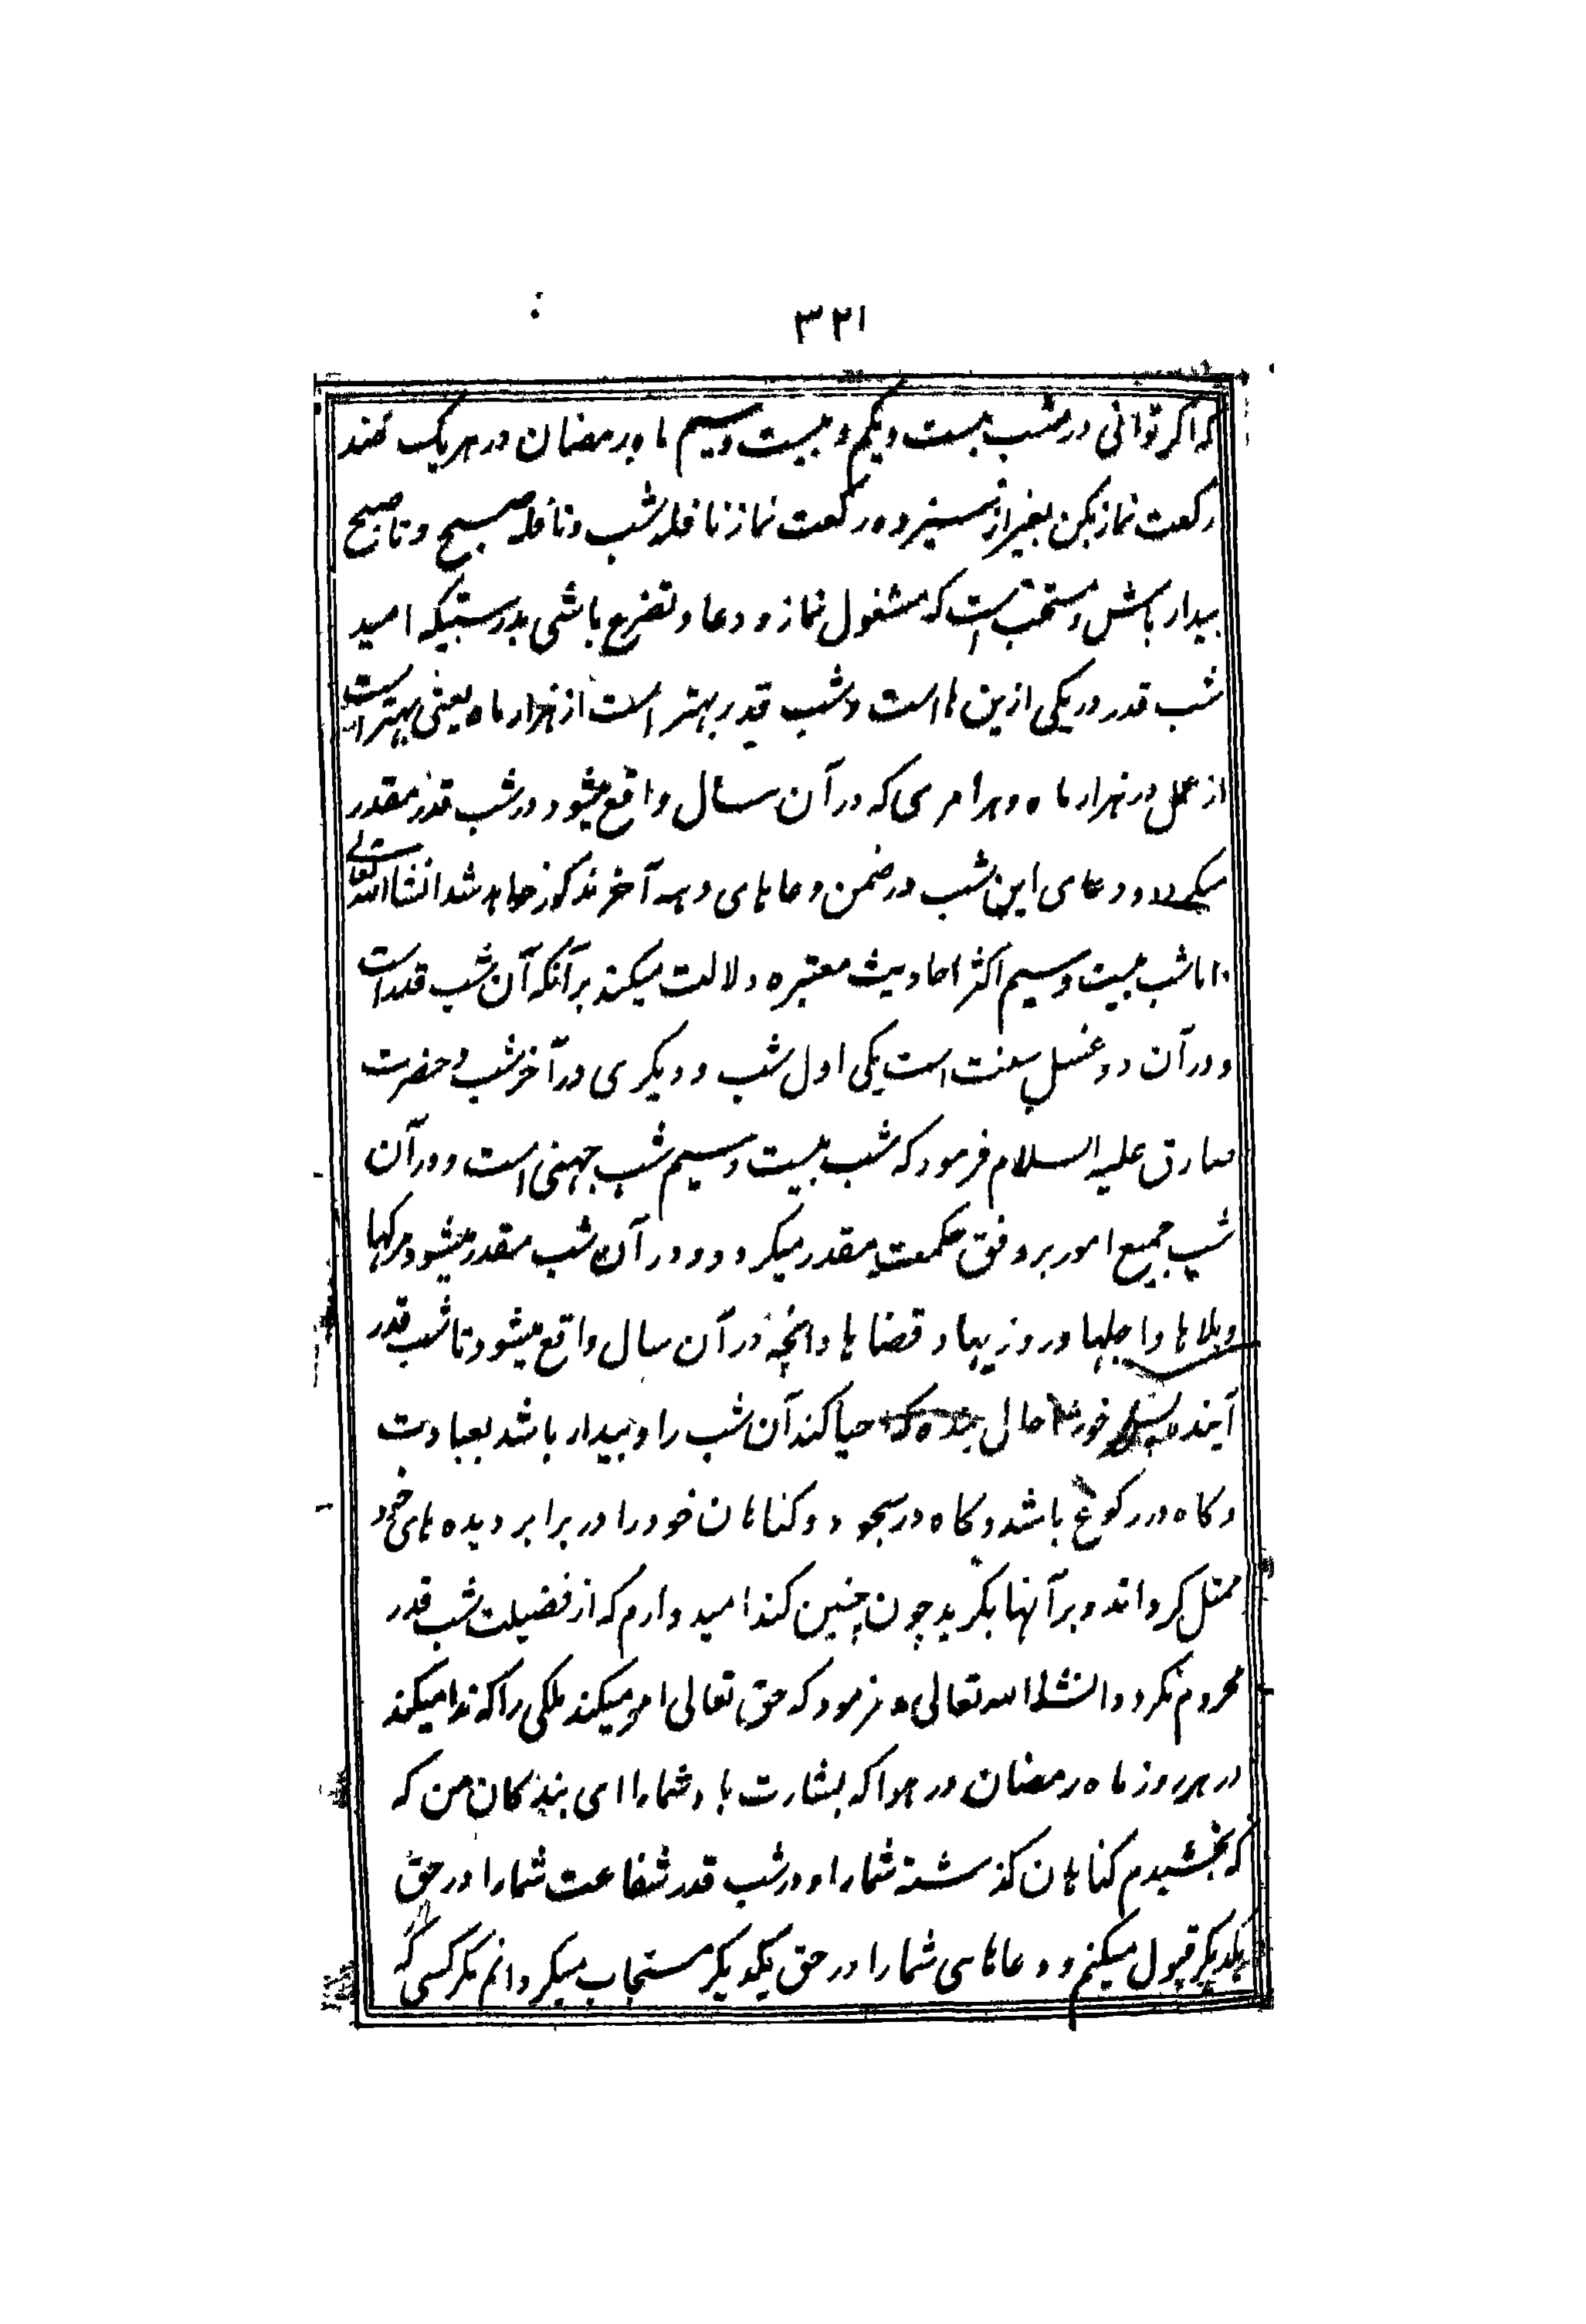 ۳۲۱
که اگر توانی در شب بیست و یکم و بیست و سیم ماه رمضان در هر یک صد
رکعت نماز بکن بغیر از سیزده رکعت نماز نافله شب و نافله صبح و تا صبح
بیدار باش و مستحب است که مشغول نماز و دعا و تضرع باشی بدرستیکه امید
شب قدر در یکی ازین ها است و شب قدر بهتر است از هزار ماه یعنی بهتر است
از عمل در هزار ماه و هر امری که در آن سال واقع میشود در شب قدر مقدر
میگردد و دعای این شب در ضمن دعاهای دهه آخر مذکور خواهد شد انشاالله تعالی
و اما شب بیست و سیم اکثر احادیث معتبره دلالت میکند بر آنکه آن شب قدر است
و در آن دو غسل سنت است یکی اول شب و دیگری در آخر شب و حضرت
صادق علیه السلام فرمود که شب بیست و سیم شب جهنی است و در آن
شب جمیع امور بر وفق حکمت مقدر میگردد و در آن شب مقدر میشود مرگها
و بلاها و اجلها و روزیها و قضاها و انچه در آن سال واقع میشود تا شب قدر
آینده خوشا حال بنده که احیا کند آن شب را و بیدار باشد بعبادت
و کاه در رکوع باشد و کاه در سجود و کناهان خود را در برابر دیده های خود
ممثل کرداند و بر آنها بگرید چون چنین کند امیدوارم که از فضیلت شب قدر
محروم نکردد انشاالله تعالی و فرمود که حق تعالی امر میکند ملکی را که ندا میکند
در هر روز ماه رمضان در هوا که بشارت باد شما را ای بندکان من که
که بخشیدم کناهان کذشته شما را و در شب قدر شفاعت شما را در حق
یکدیکر قبول میکنم و دعاهای شما را در حق یکدیکر مستجاب میکردانم مکر کسی که